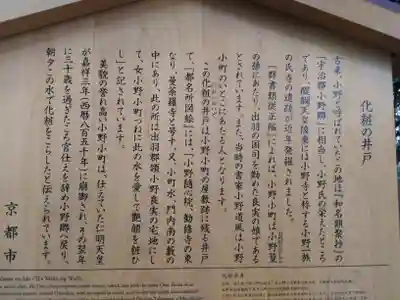 化粧の井戸
古来、小野と呼ばれていたこの地は「和名類聚抄」の
「宇治郡小野郷」に相当し、小野氏の栄えたところ
であり、醍醐天皇陵東には小野寺と称する小野一族
の氏寺の遺跡が近年発掘されました。
「群書類従正編」によれば、小野小町は小野篁
の孫にあたり、出羽の国司を勤めた良実の娘である
とされています。また、当時の書家小野道風は小野
小町のいとこにあたる人となります。
この化粧の井戸は小野小町の屋敷跡に残る井戸
で、「都名所図絵」には、「小野随心院、勧修寺の東
なり、曼荼羅寺と号す。又、小町水、門内南の藪の
中にあり、此の所は出羽郡領小野良実の宅地にし
て、女小野小町つねに此の水を愛して艶顔を粧ひ
し」と記されています。
美貌の誉れ高い小野小町は、仕えていた仁明天皇
が嘉祥三年(西暦八百五十年)に崩御され、その翌年
に三十歳を過ぎたころ宮仕えを辞め小野郷へ戻り、
朝夕この水で化粧をこらしたと伝えられています。
京都市